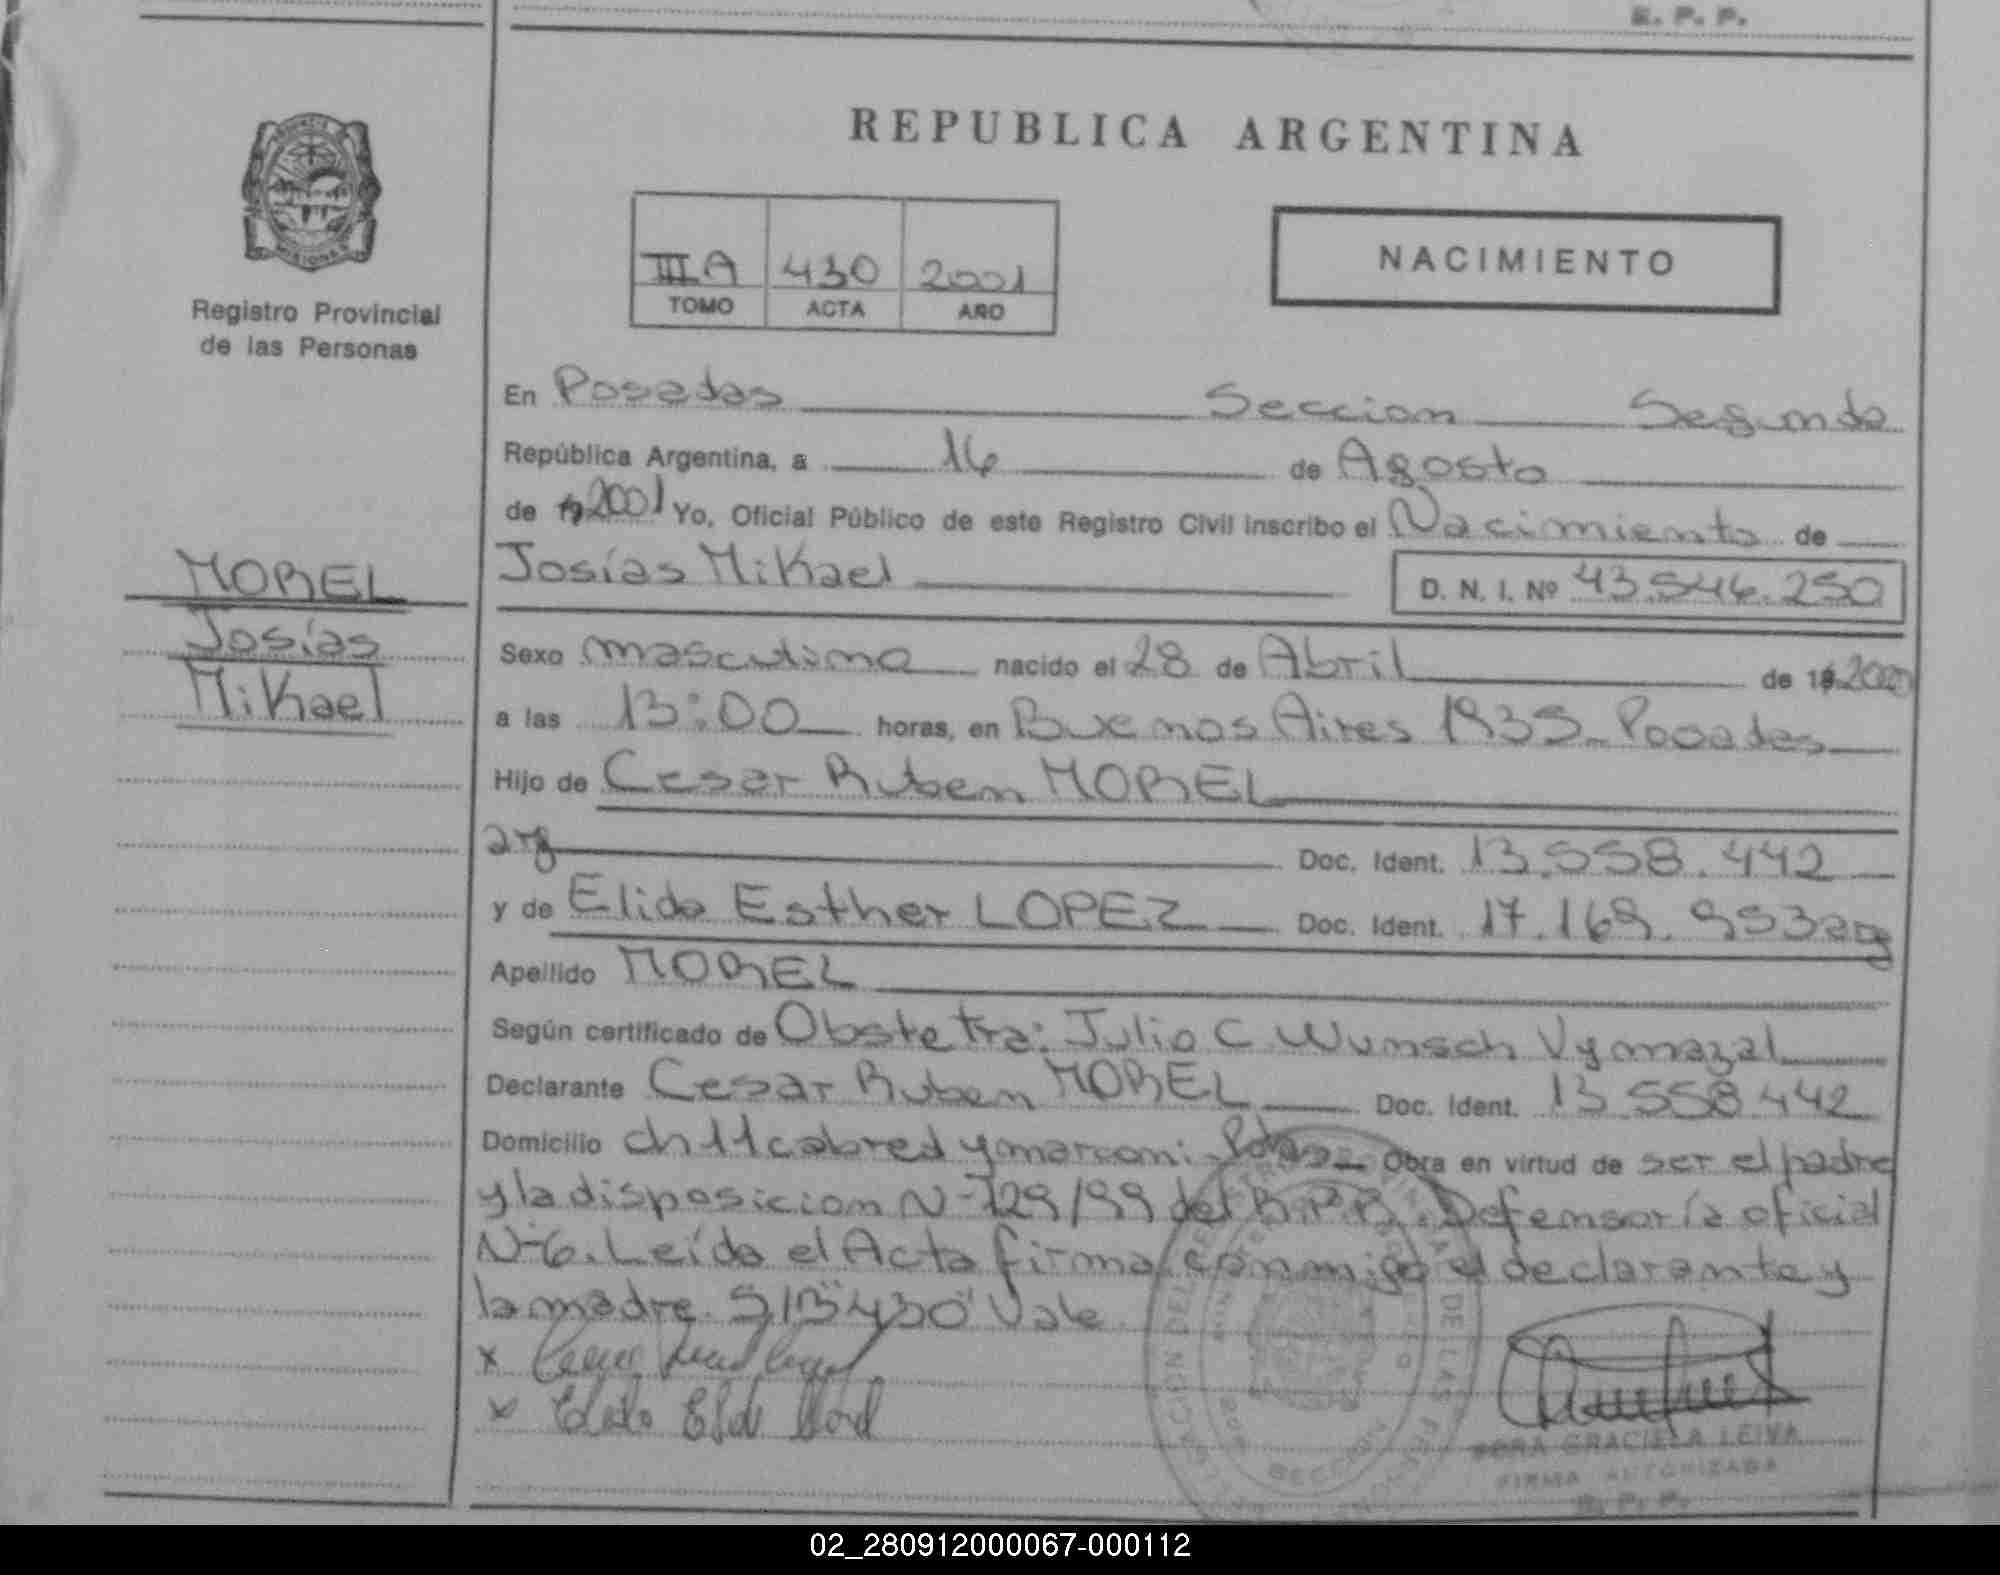 E. P. P.
REPUBLICA ARGENTINA
PROVINCIA DE MISIONES
Registro Provincial
de las Personas
III A 430 2001
TOMO ACTA AÑO
NACIMIENTO
En Posadas Seccion Segunda
República Argentina, a 16 de Agosto
de 19 2001 Yo, Oficial Público de este Registro Civil inscribo el Nacimiento de
Josías Mikael
D. N. I. Nº 43.546.250
MOREL
Josías
Mikael
Sexo masculino nacido el 28 de Abril de 19 2000
a las 13:00 horas, en Buenos Aires 1935 - Posadas
Hijo de Cesar Ruben MOREL
arg Doc. Ident. 13.558.442
y de Elida Esther LOPEZ Doc. Ident. 17.169.953 arg
Apellido MOREL
Según certificado de Obstetra: Julio C Wunsch Vymazal
Declarante Cesar Ruben MOREL Doc. Ident. 13.558.442
Domicilio ch 11 cabred y marconi - Pdas Obra en virtud de ser el padre
y la disposicion N- 729/99 del R.P.P. Defensoría oficial
N-6. Leída el Acta firma conmigo el declarante y
la madre. S/B "430" Vale
x
x
GRACIELA LEIVA
FIRMA AUTORIZADA
R. P. P.
02_280912000067-000112